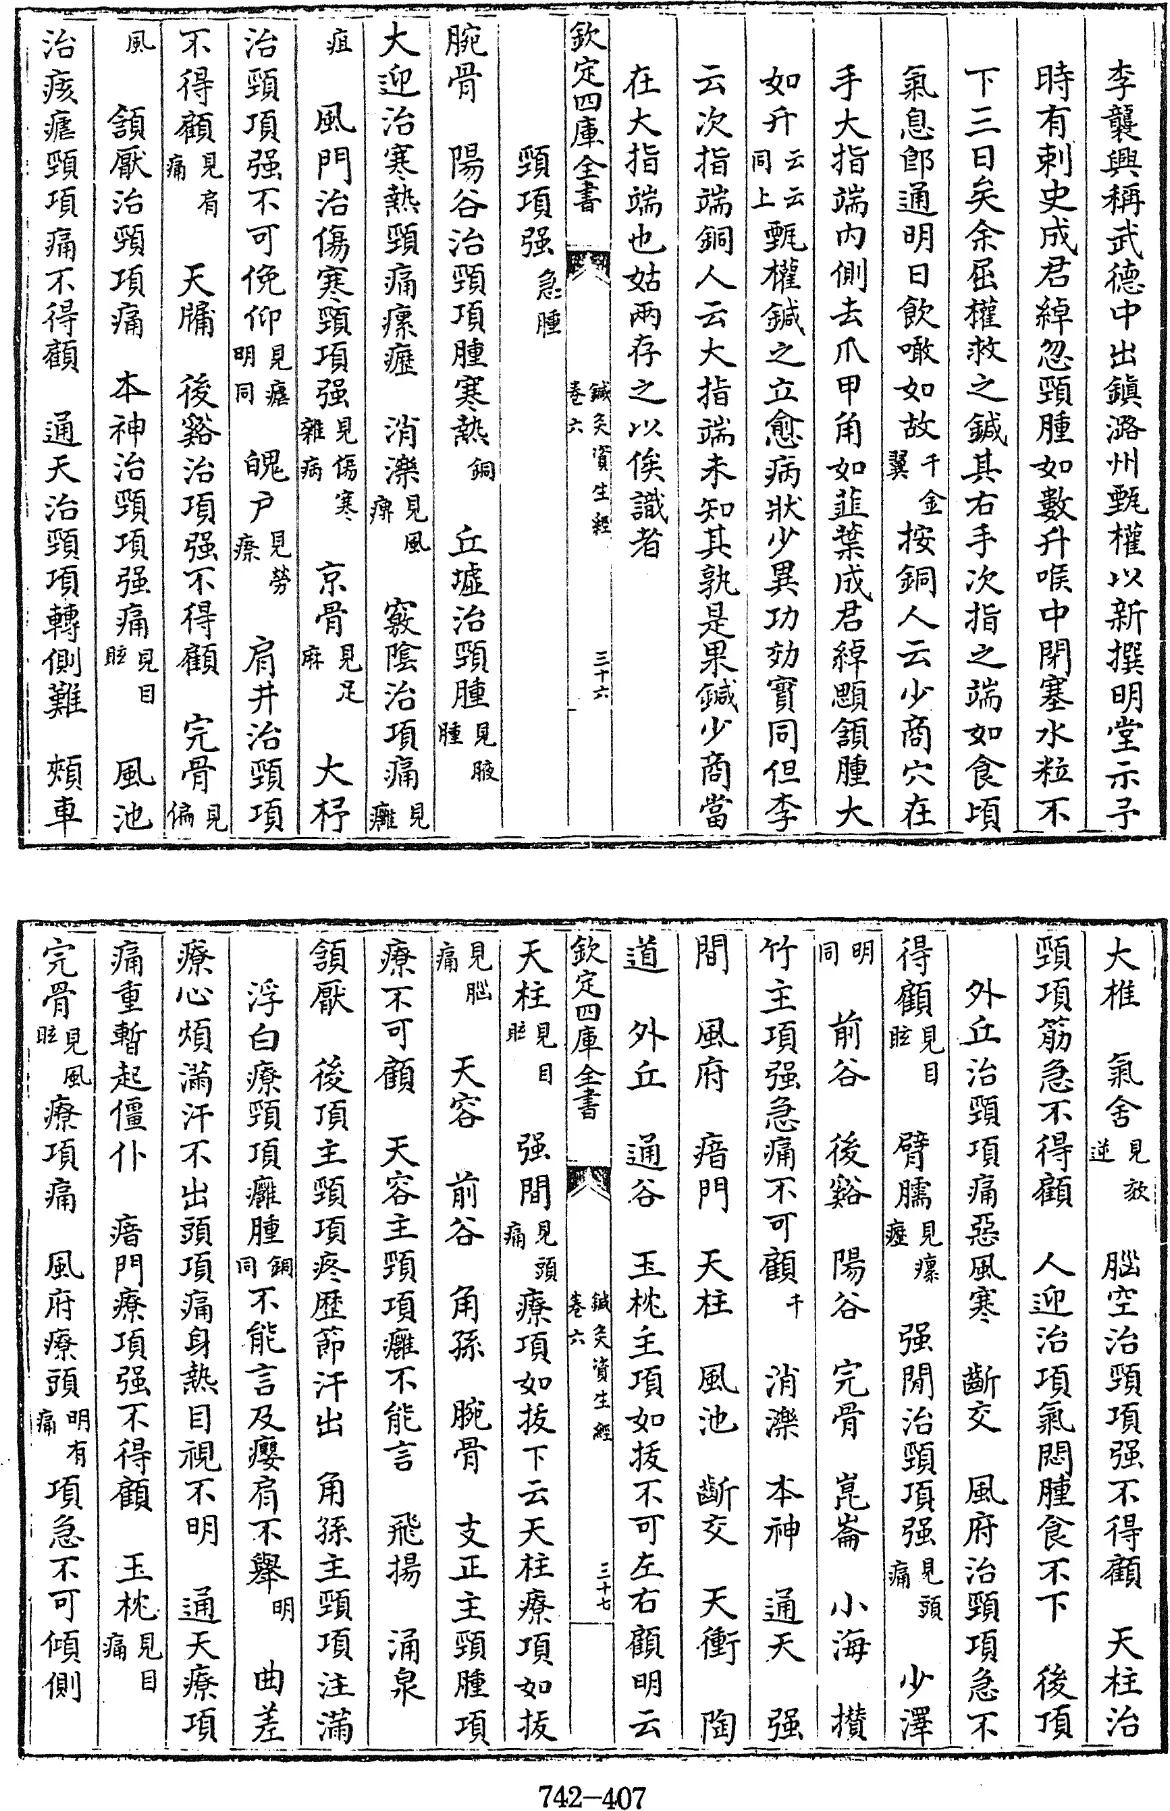 李襲興稱武德中出鎮潞州甄權以新撰明堂示予
時有刺史成君綽忽頸腫如數升喉中閉塞水粒不
下三日矣余屈權救之鍼其右手次指之端如食頃
氣息卽通明日飲噉如故千金翼按銅人云少商穴在
手大指端內側去爪甲角如韮葉成君綽顋頷腫大
如升云云同上甄權鍼之立愈病狀少異功効實同但李
云次指端銅人云大指端未知其孰是果鍼少商當
在大指端也姑兩存之以俟識者
欽定四庫全書 鍼灸資生經 卷六 三十六
頸項强急腫
腕骨 陽谷治頸項腫寒熱銅 丘墟治頸腫見腋腫
大迎治寒熱頸痛瘰癧 消濼見風痹 竅陰治項痛見癰
疽 風門治傷寒頸項强見傷寒雜病 京骨見足麻 大杼
治頸項强不可俛仰見瘧明同 魄戶見勞瘵 肩井治頸項
不得顧見肩痛 天牖 後谿治項强不得顧 完骨見偏
風 頷厭治頸項痛 本神治頸項强痛見目眩 風池
治痎瘧頸項痛不得顧 通天治頸項轉側難 頰車
大椎 氣舍見欬逆 腦空治頸項强不得顧 天柱治
頸項筋急不得顧 人迎治項氣悶腫食不下 後頂
外丘治頸項痛惡風寒 齗交 風府治頸項急不
得顧見目眩 臂臑見瘰癧 强間治頸項强見頭痛 少澤
明同 前谷 後谿 陽谷 完骨 崑崙 小海 攅
竹主項强急痛不可顧千 消濼 本神 通天 强
間 風府 瘖門 天柱 風池 齗交 天衝 陶
道 外丘 通谷 玉枕主項如拔不可左右顧明云
欽定四庫全書 鍼灸資生經 卷六 三十七
天柱見目眩 强間見頭痛療項如拔下云天柱療項如拔
見腦痛 天容 前谷 角孫 腕骨 支正主頸腫項
療不可顧 天容主頸項癰不能言 飛揚 涌泉
頷厭 後頂主頸項疼歷節汗出 角孫主頸項注滿
浮白療頸項癰腫銅同不能言及癭肩不舉明 曲差
療心煩滿汗不出頭項痛身熱目視不明 通天療項
痛重暫起僵仆 瘖門療項强不得顧 玉枕見目痛
完骨見風眩療項痛 風府療頭明有痛項急不可傾側
742-407